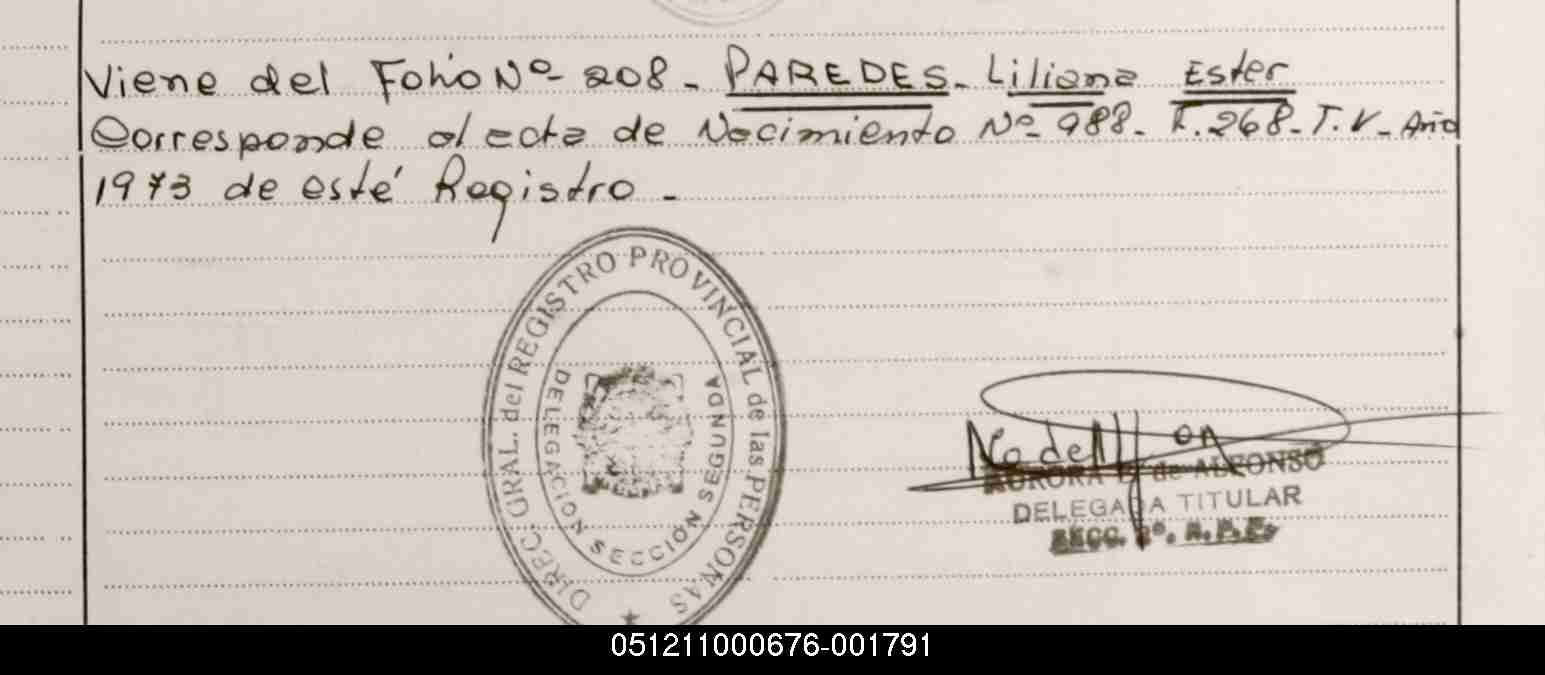 Viene del Folio Nº 208 - PAREDES - Liliana Ester
Corresponde al acta de Nacimiento Nº 988 - F. 268 - T. V - Año
1973 de esté Registro -
DIREC. GRAL. del REGISTRO PROVINCIAL de las PERSONAS
DELEGACION SECCIÓN SEGUNDA
AURORA de ALFONSO
DELEGADA TITULAR
SECC. 2º.
051211000676-001791